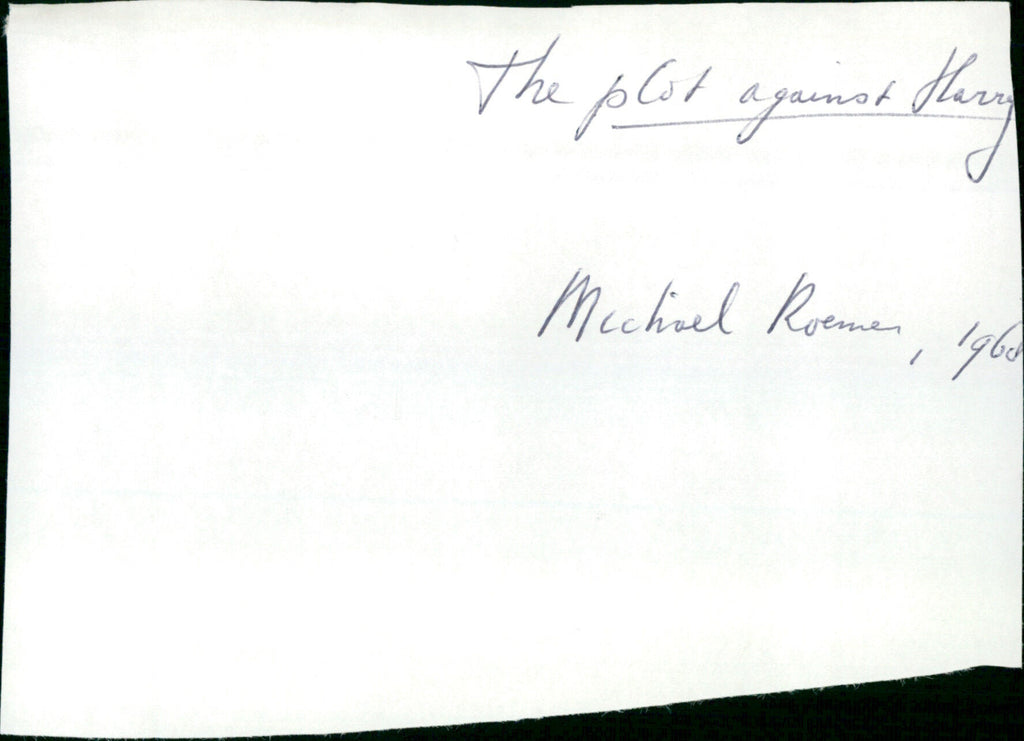 The plot against Harry
Michael Roemer, 196